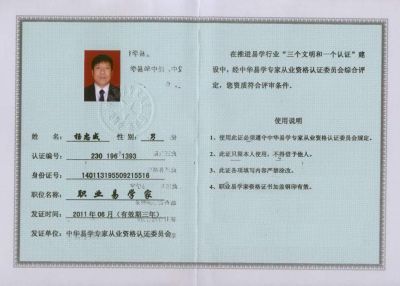 姓 名： 杨志威 性 别： 男
认证编号： 230 196 1393
身份证号： 140113195509215516
职位名称： 职业易学家
发证时间： 2011年06月（有效期三年）
发证单位：中华易学专家从业资格认证委员会
在推进易学行业“三个文明和一个认证”建
设中，经中华易学专家从业资格认证委员会综合评
定，您资质符合评审条件。
使用说明
1、使用此证必须遵守中华易学专家从业资格认证委员会规定。
2、此证只限本人使用，不得借于他人。
3、此证各项填写内容严禁涂改。
4、职业易学家资格证书加盖钢印有效。